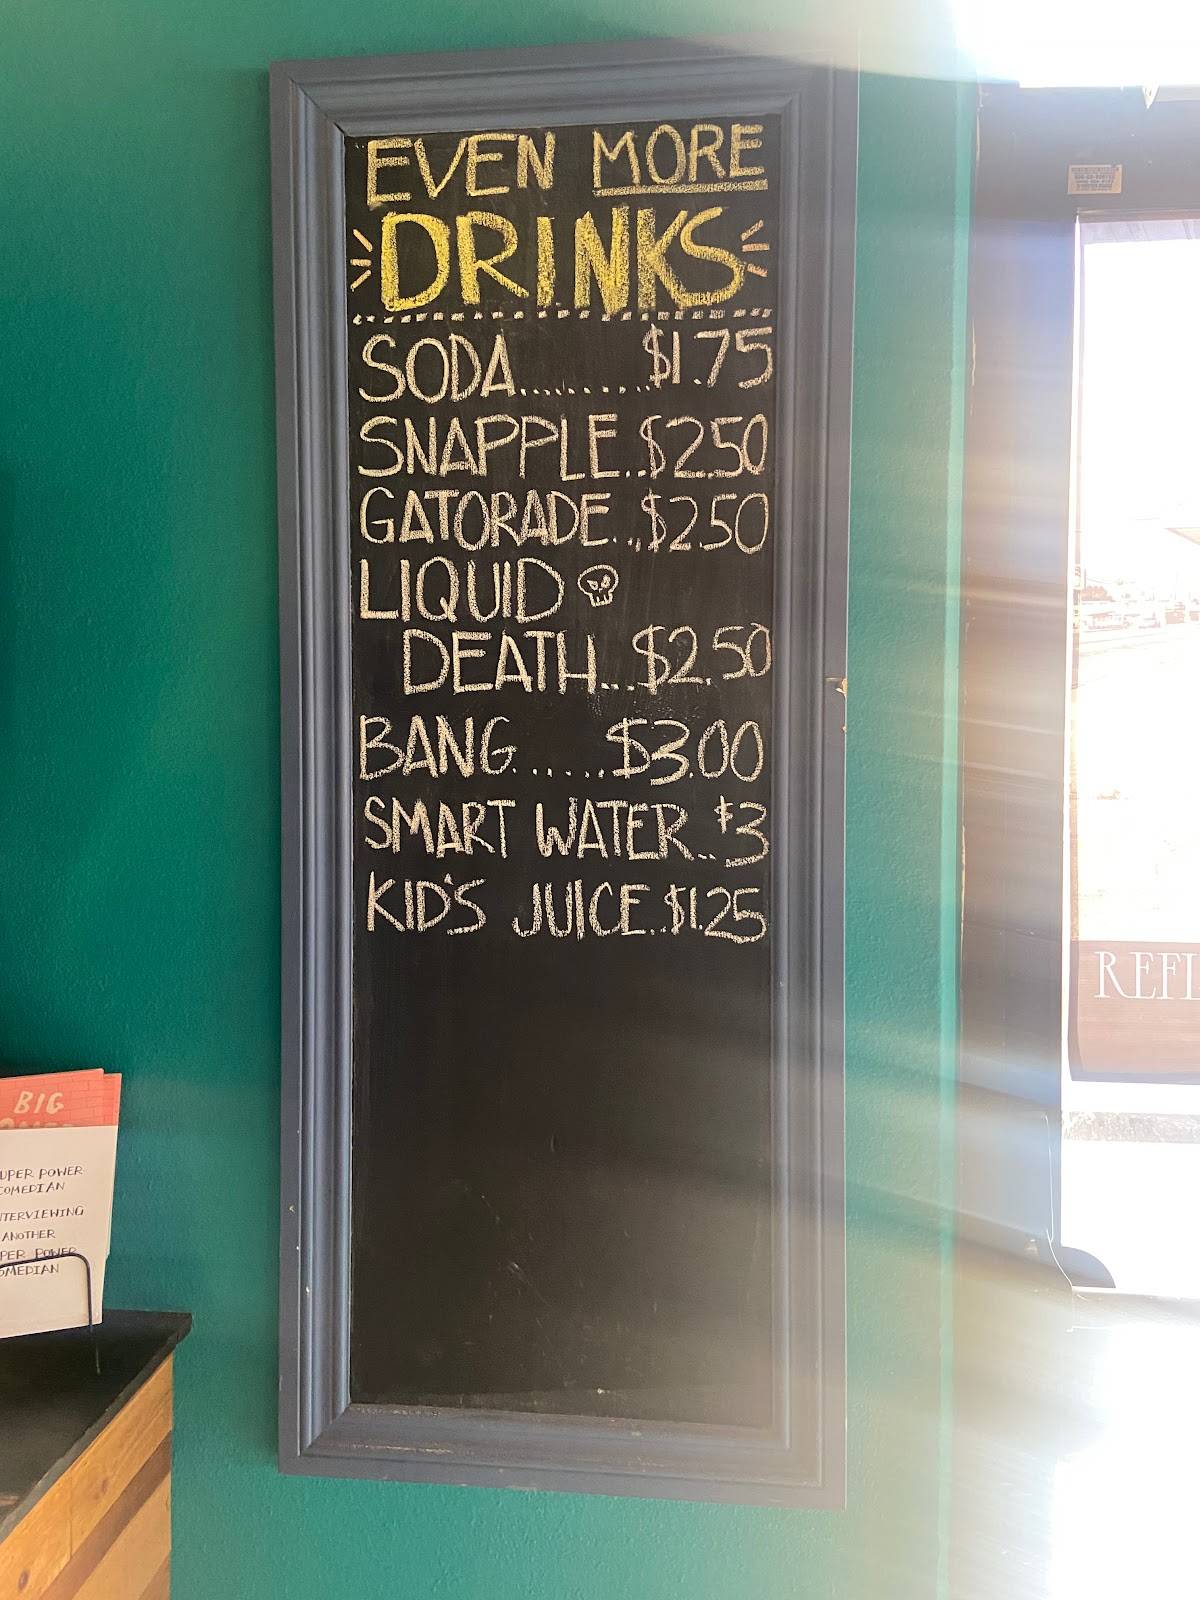 EVEN MORE
DRINKS
SODA.........$1.75
SNAPPLE..$2.50
GATORADE...$2.50
LIQUID
DEATH...$2.50
BANG......$3.00
SMART WATER..$3
KID'S JUICE..$1.25
REFL
BIG
UPER POWER
COMEDIAN
TERVIEWING
ANOTHER
PER POWER
OMEDIAN